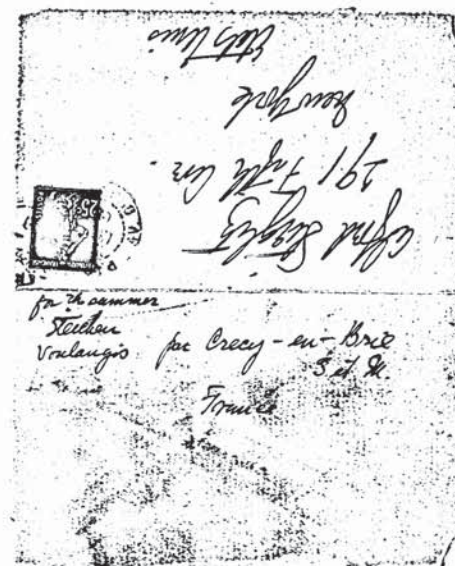 Alfred Stieglitz
291 Fifth Ave.
New York
Etats Unis
25c
POSTES
for the summer
Steichen
Voulangis par Crecy-en-Brie
S et M.
France